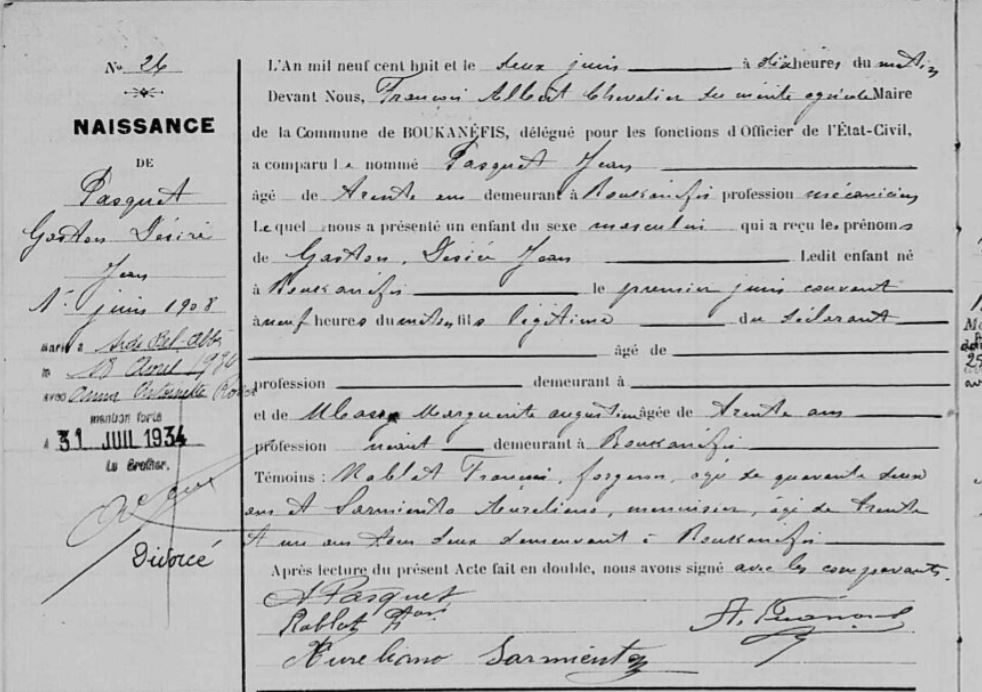 No 26
NAISSANCE
DE
Pasquet
Gaston Désiré
Jean
1er juin 1908
Marié à Sidi Bel Abbès
le 18 Avril 1934
avec Anna Antoinette
mention faite
31 JUIL 1934
Le Greffier,
Divorcé
L'An mil neuf cent huit et le deux juin à dix heures du matin
Devant Nous, François Albert Chevalier du mérite agricole Maire
de la Commune de BOUKANÉFIS, délégué pour les fonctions d'Officier de l'État-Civil,
a comparu le nommé Pasquet Jean
âgé de trente ans demeurant à Boukanéfis profession mécanicien
Lequel nous a présenté un enfant du sexe masculin qui a reçu les prénoms
de Gaston, Désiré Jean Ledit enfant né
à Boukanéfis le premier juin courant
à neuf heures du matin fils légitime du déclarant
âgé de
profession demeurant à
et de Marguerite Augustine âgée de trente ans
profession néant demeurant à Boukanéfis
Témoins : Rablat François, forgeron, âgé de quarante deux
ans et Sarmiento Aureliano, menuisier, âgé de trente
et un ans tous deux demeurant à Boukanéfis
Après lecture du présent Acte fait en double, nous avons signé avec les comparants.
Pasquet
Rablat
Aureliano Sarmiento